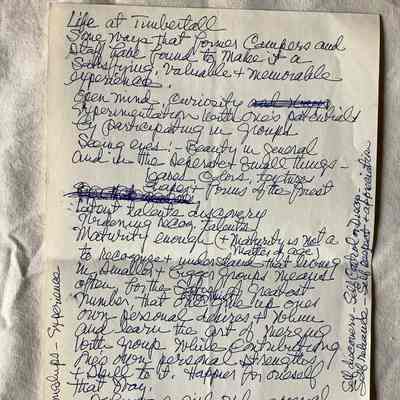 Life at Timbertall
Some ways that former Campers and
Staff have found to make it a
Satisfying, Valuable & memorable
experience.
Open mind, Curiosity
experimentation with one's potentials
by participating in groups
Seeing eyes: - Beauty in General
And in the Separate & Small things -
Leaves, Colors, textures
Forms of the forest
Latent talents discovery
talents
Maturity enough (+ maturity is not a
matter of age)
to recognize & understand that living
in Smaller & bigger groups means
often, for the greatest
number, that one give up ones
own personal desires & whim
and learn the art of merging
with group while Contributing
one's own personal strengths
& Skill to it. Happier for oneself
that way.
Self discovery - Self Control
Self reliance - Self respect + appreciation
Experience